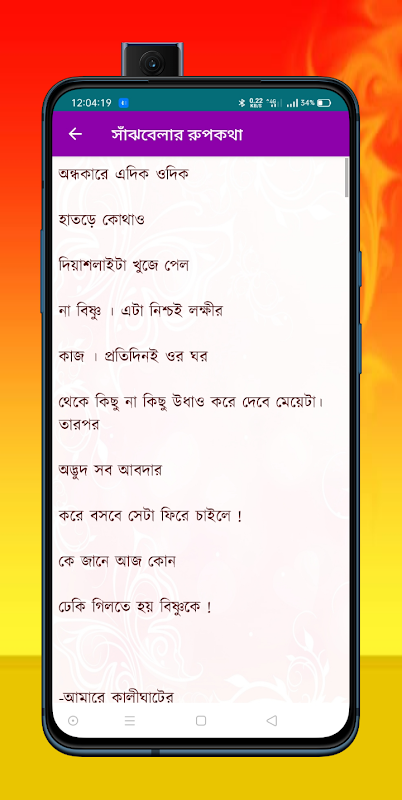 12:04:19 0.22 KB/S 4G 34%
সাঁঝবেলার রুপকথা
অন্ধকারে এদিক ওদিক
হাতড়ে কোথাও
দিয়াশলাইটা খুজে পেল
না বিষ্ণু । এটা নিশ্চই লক্ষীর
কাজ । প্রতিদিনই ওর ঘর
থেকে কিছু না কিছু উধাও করে দেবে মেয়েটা।
তারপর
অদ্ভুদ সব আবদার
করে বসবে সেটা ফিরে চাইলে !
কে জানে আজ কোন
ঢেকি গিলতে হয় বিষ্ণুকে !
-আমারে কালীঘাটের